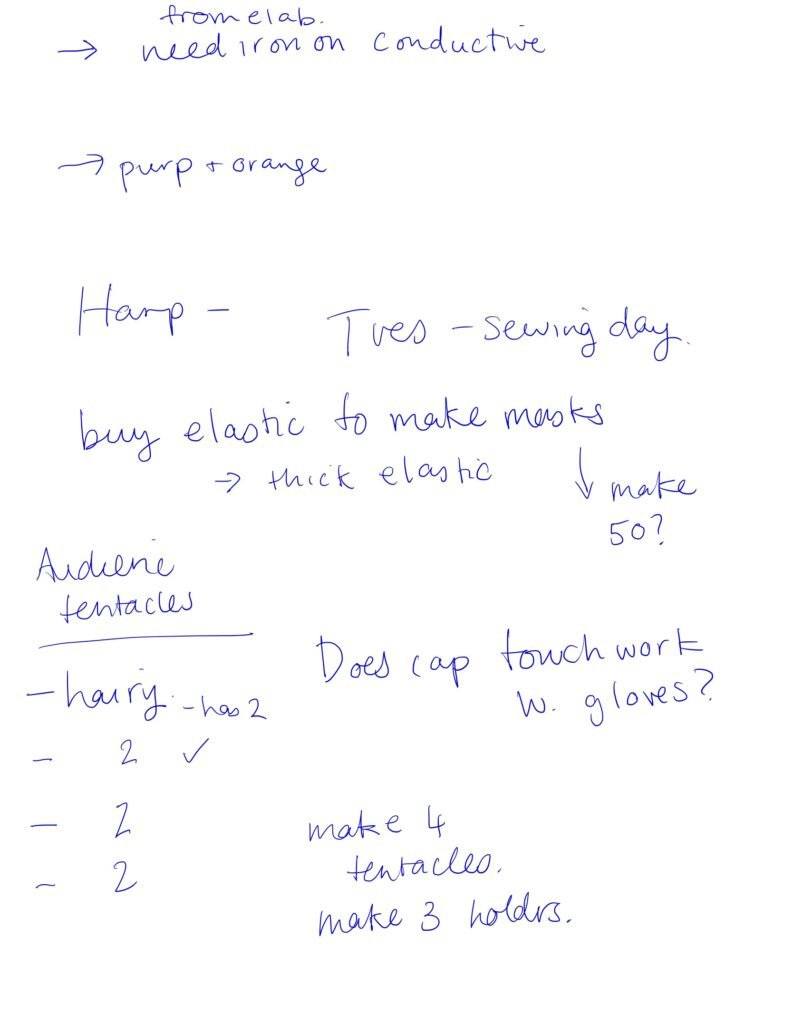 from elab.
→ need iron on conductive
→ purp + orange
Harp -
Tues - sewing day.
buy elastic to make masks
→ thick elastic
↓ make
50?
Audience
tentacles
- hairy. - has 2
- 2 ✓
- 2
- 2
Does cap touch work
w. gloves?
make 4
tentacles.
make 3 holdrs.